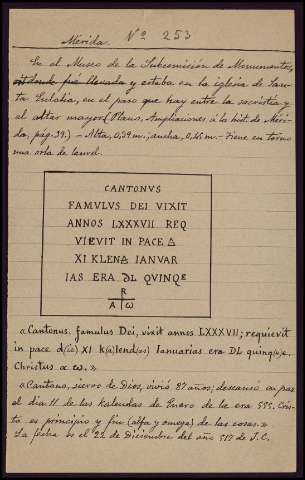 Mérida. Nº 253
En el Museo de la Subcomisión de Monumentos,
donde fué llevada y estaba en la iglesia de San-
ta Eulalia, en el paso que hay entre la sacristía y
el altar mayor (Plano, Ampliaciones á la hist. de Méri-
da, pág. 39.) - Alta, 0,39 m.; ancha, 0,45 m. - Tiene en torno
una orla de laurel.
CANTONVS
FAMVLVS DEI VIXIT
ANNOS LXXXVII REQ
VIEVIT IN PACE Δ
XI KLENΔ IANVAR
IAS ERA DL QVINQE
R
A ω
«Cantonus. famulus Dei, vixit annos LXXXVII; requievit
in pace d(ie) XI k(a)lend(as) Ianuarias era DL quinq(u)e.
Christus α ω.»
«Cantono, siervo de Dios, vivió 87 años; descansó en paz
el día 11 de las kalendas de Enero de la era 555. Cris-
to es principio y fin (alfa y omega) de las cosas.»
La fecha es el 22 de Diciembre del año 517 de J.C.